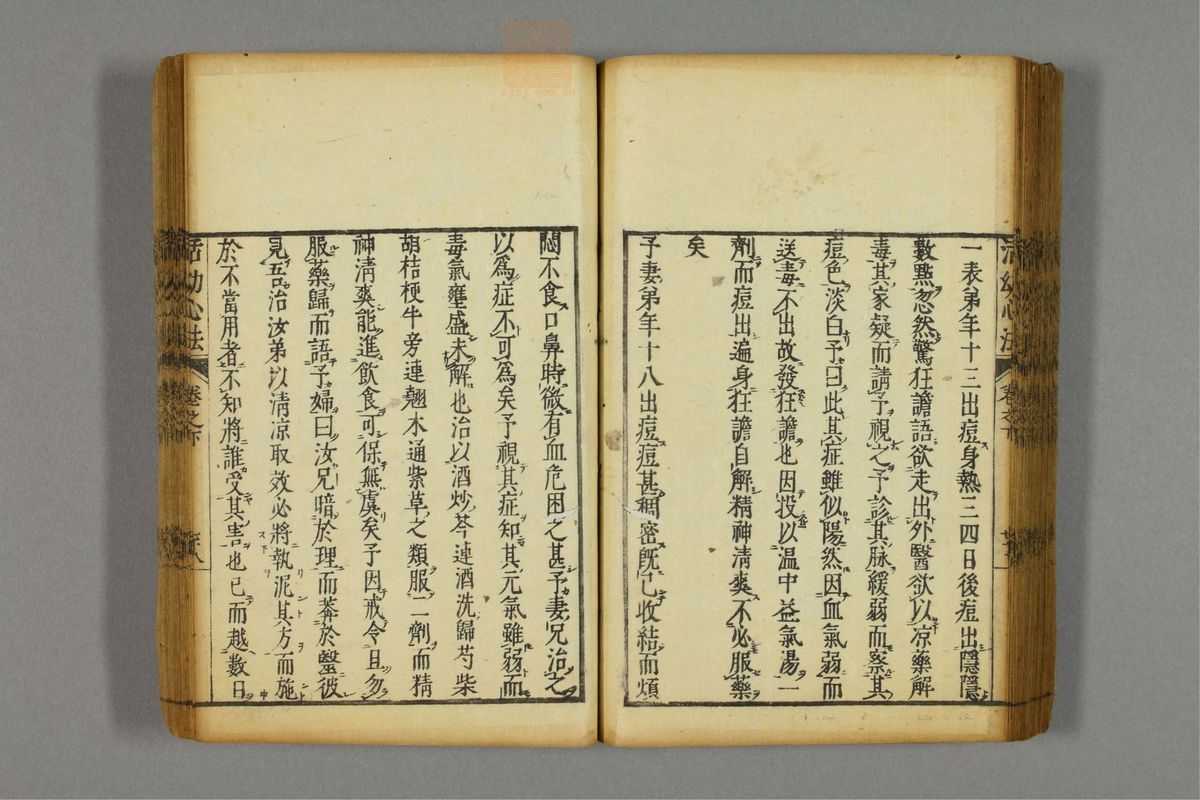 一表弟年十三出痘身熱三四日後痘出隱隱
數點忽然驚狂譫語欲走出外醫欲以凉藥解
毒其家疑而請予視之予診其脉緩弱而察其
痘色淡白予曰此其症雖似陽然因血氣弱而
送毒不出故發狂譫也因投以温中益氣湯一
劑而痘出遍身狂譫自解精神清爽不必服藥
矣
予妻弟年十八出痘痘甚稠密既已收結而煩
悶不食口鼻時微有血危困之甚予妻兄治之
以爲症不可爲矣予視其症知其元氣雖弱而
毒氣壅盛未解也治以酒炒芩連酒洗歸芍柴
胡桔梗牛旁連翹木通紫草之類服二劑而精
神清爽能進飲食可保無虞矣予因戒令且勿
服藥歸而語予婦曰汝兄暗於理而莽於醫彼
見吾治汝弟以清凉取效必將執泥其方而施
於不當用者不知將誰受其害也已而越數日
活幼心法 卷之下